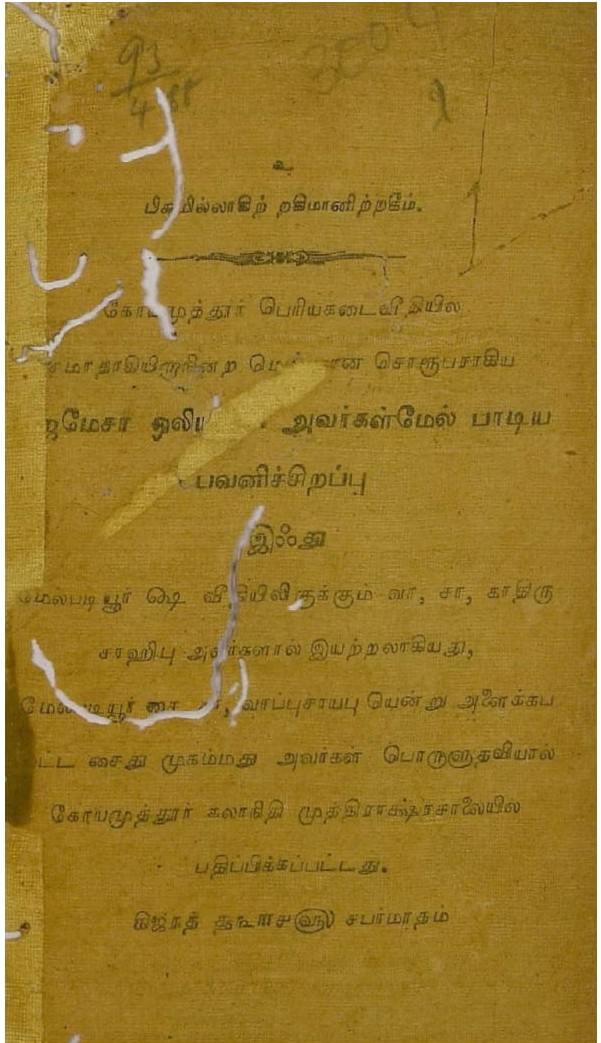 93
4
உ
பிசுமில்லாகிற் றகிமானிற்றகீம்.
கோயமுத்தூர் பெரியகடைவீதியில
சொரூபசாகிய
ஜமேசா ஒலி அவர்கள்மேல் பாடிய
பவனிச்சிறப்பு
இஃது
மேல்படியூர் ௸ வீதியிலிருக்கும் வா, சா, காதிரு
சாஹிபு அவர்களால் இயற்றலாகியது,
வாப்புசாயபு யென்று அளைக்கப
ட்ட சைது முகம்மது அவர்கள் பொருளுதவியால்
கோயமுத்தூர் கலாநிதி முத்திராக்ஷரசாலையில
பதிப்பிக்கப்பட்டது.
கிஜ்ரத் சபர்மாதம்